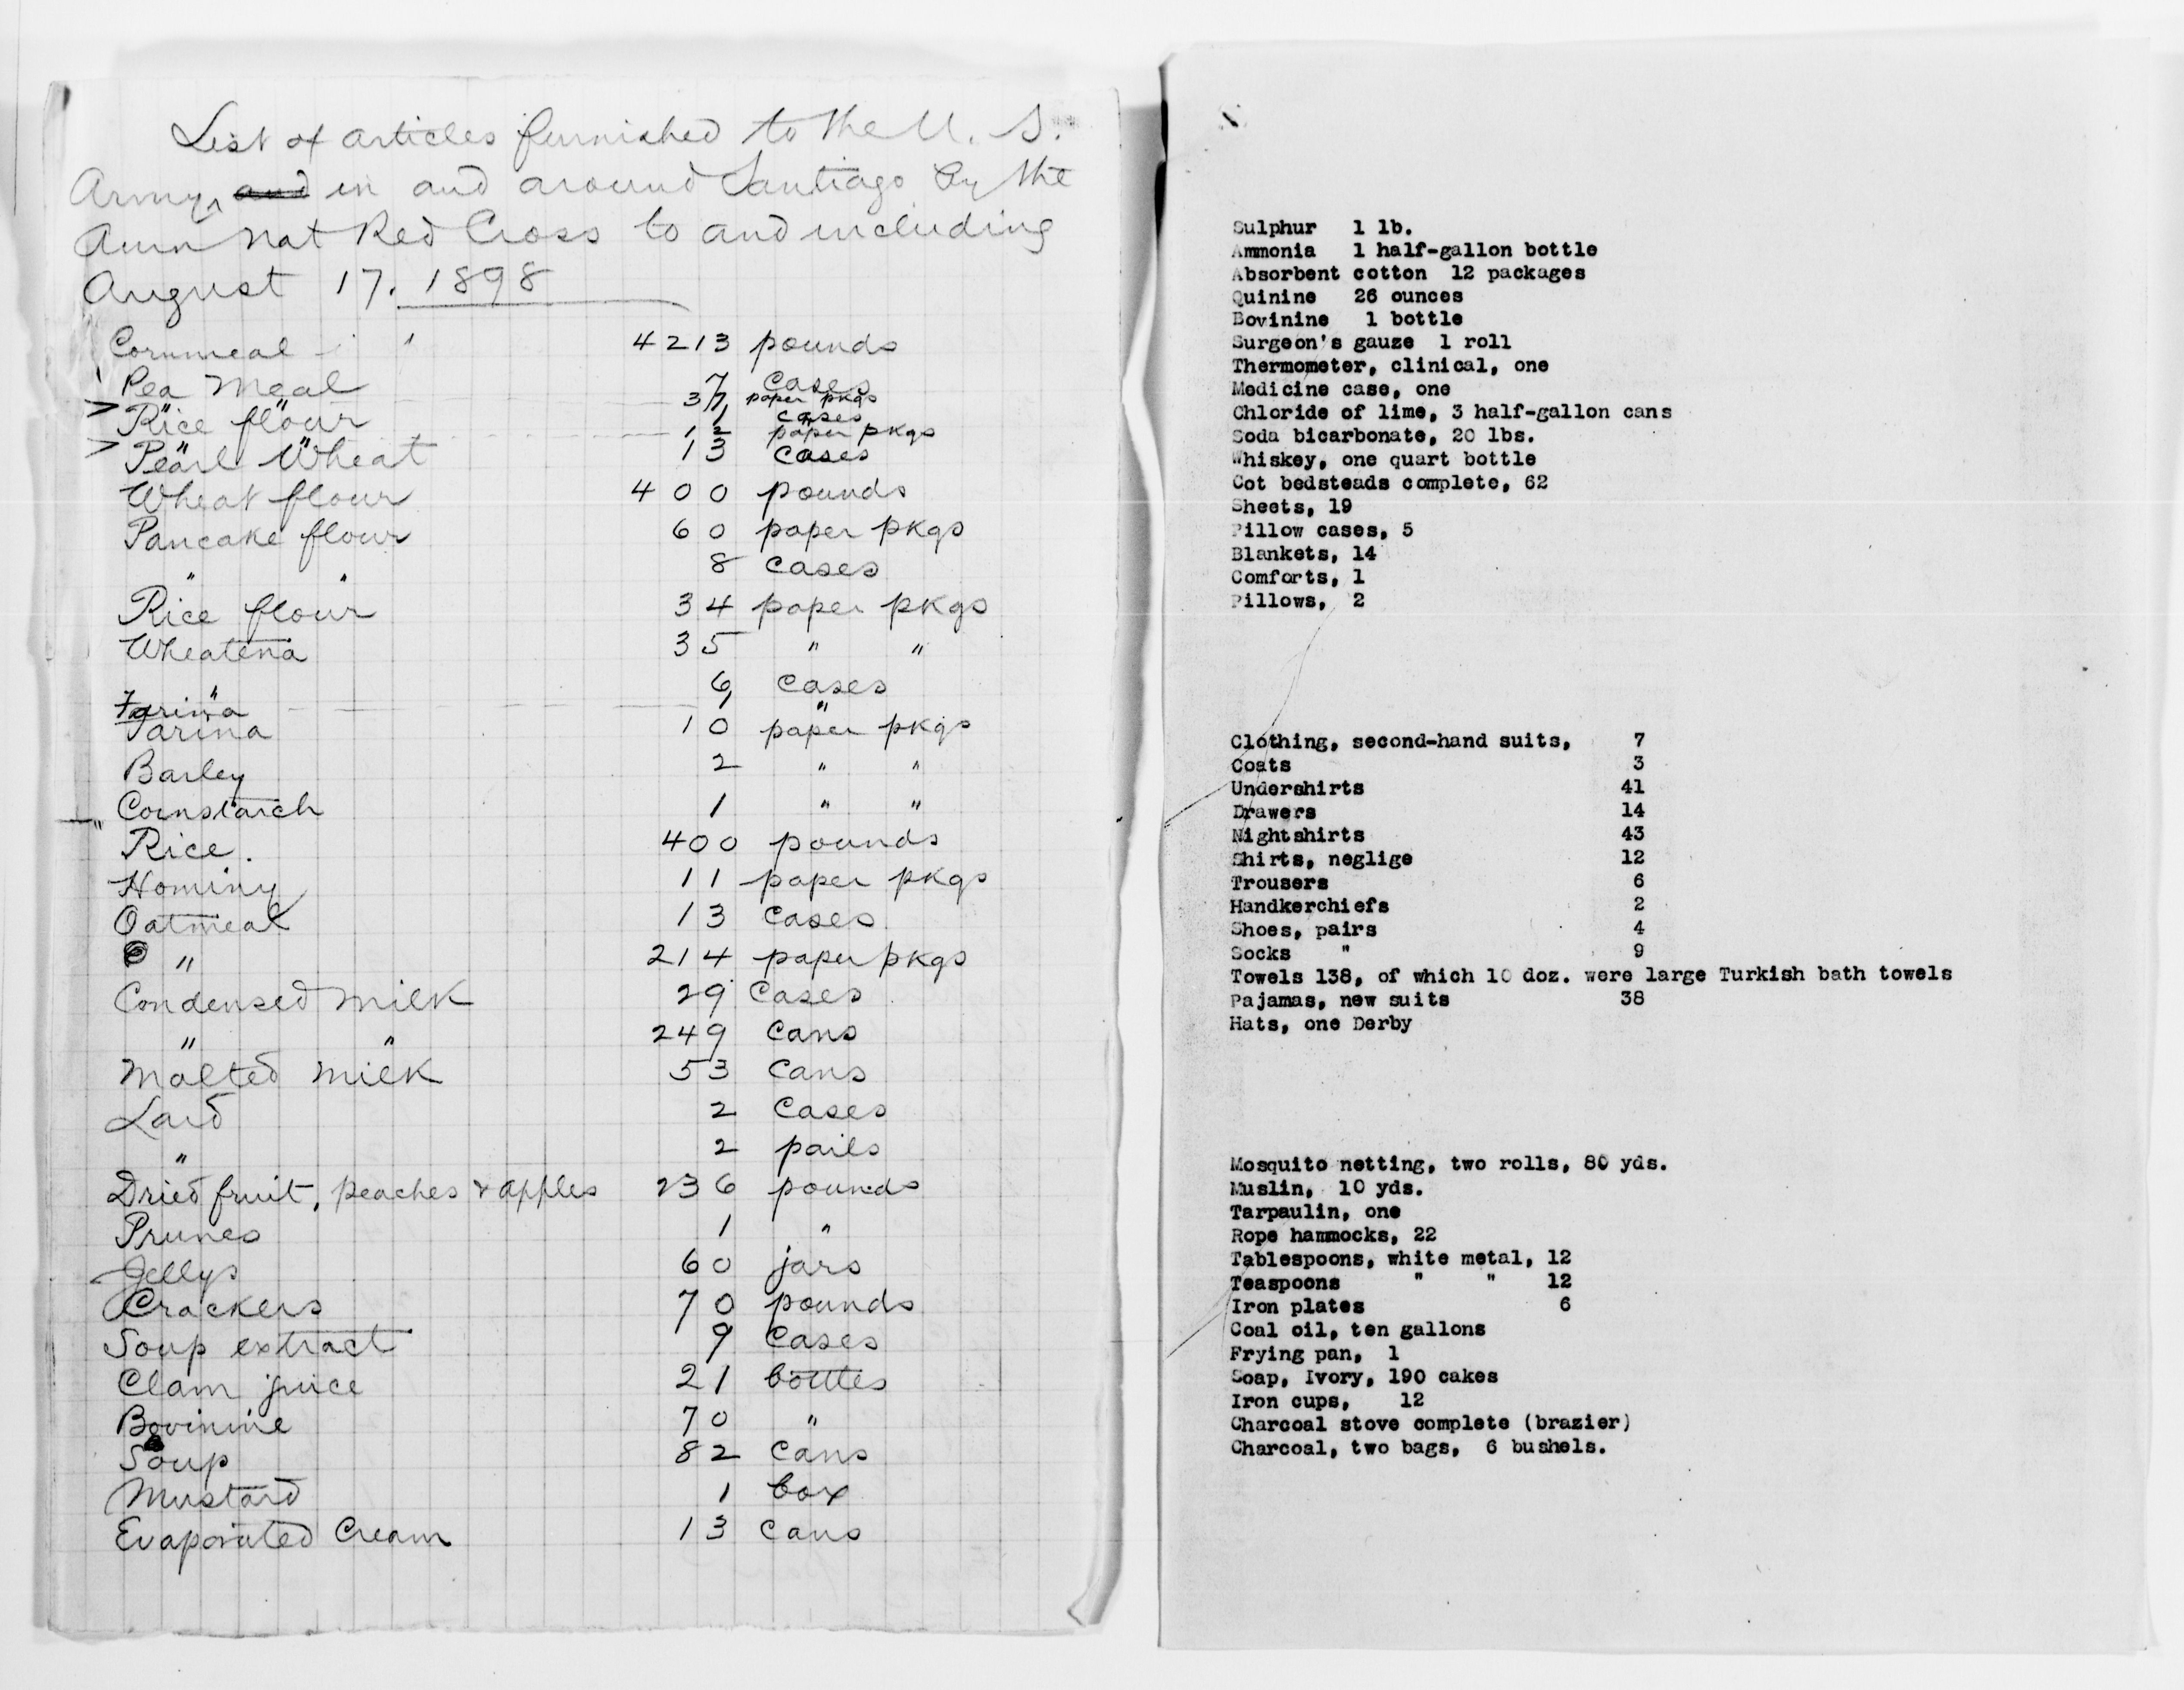 List of articles furnished to the U. S.
Army, and in and around Santiago by the
Amn Nat Red Cross to and including
August 17. 1898
Cornmeal 4213 pounds
Pea Meal 7 cases
" " 37 paper pkgs
Rice flour 1 cases
" " 12 paper pkgs
Pearl Wheat 13 cases
Wheat flour 400 pounds
Pancake flour 60 paper pkgs
" " 8 cases
Rice flour 34 paper pkgs
Wheatena 35 " "
" 6 cases
Farina "
Farina 10 paper pkgs
Barley 2 " "
Cornstarch 1 " "
Rice. 400 pounds
Hominy 11 paper pkgs
Oatmeal 13 cases
" 214 paper pkgs
Condensed milk 29 cases
" " 249 cans
Malted milk 53 cans
Lard 2 cases
" 2 pails
Dried fruit, peaches & apples 236 pounds
Prunes 1 "
Jellys 60 jars
Crackers 70 pounds
Soup extract 9 cases
Clam juice 21 bottles
Bovinine 70 "
Soup 82 cans
Mustard 1 box
Evaporated Cream 13 cans
Sulphur 1 lb.
Ammonia 1 half-gallon bottle
Absorbent cotton 12 packages
Quinine 26 ounces
Bovinine 1 bottle
Surgeon's gauze 1 roll
Thermometer, clinical, one
Medicine case, one
Chloride of lime, 3 half-gallon cans
Soda bicarbonate, 20 lbs.
Whiskey, one quart bottle
Cot bedsteads complete, 62
Sheets, 19
Pillow cases, 5
Blankets, 14
Comforts, 1
Pillows, 2
Clothing, second-hand suits, 7
Coats 3
Undershirts 41
Drawers 14
Nightshirts 43
Shirts, neglige 12
Trousers 6
Handkerchiefs 2
Shoes, pairs 4
Socks " 9
Towels 138, of which 10 doz. were large Turkish bath towels
Pajamas, new suits 38
Hats, one Derby
Mosquito netting, two rolls, 80 yds.
Muslin, 10 yds.
Tarpaulin, one
Rope hammocks, 22
Tablespoons, white metal, 12
Teaspoons " " 12
Iron plates 6
Coal oil, ten gallons
Frying pan, 1
Soap, Ivory, 190 cakes
Iron cups, 12
Charcoal stove complete (brazier)
Charcoal, two bags, 6 bushels.